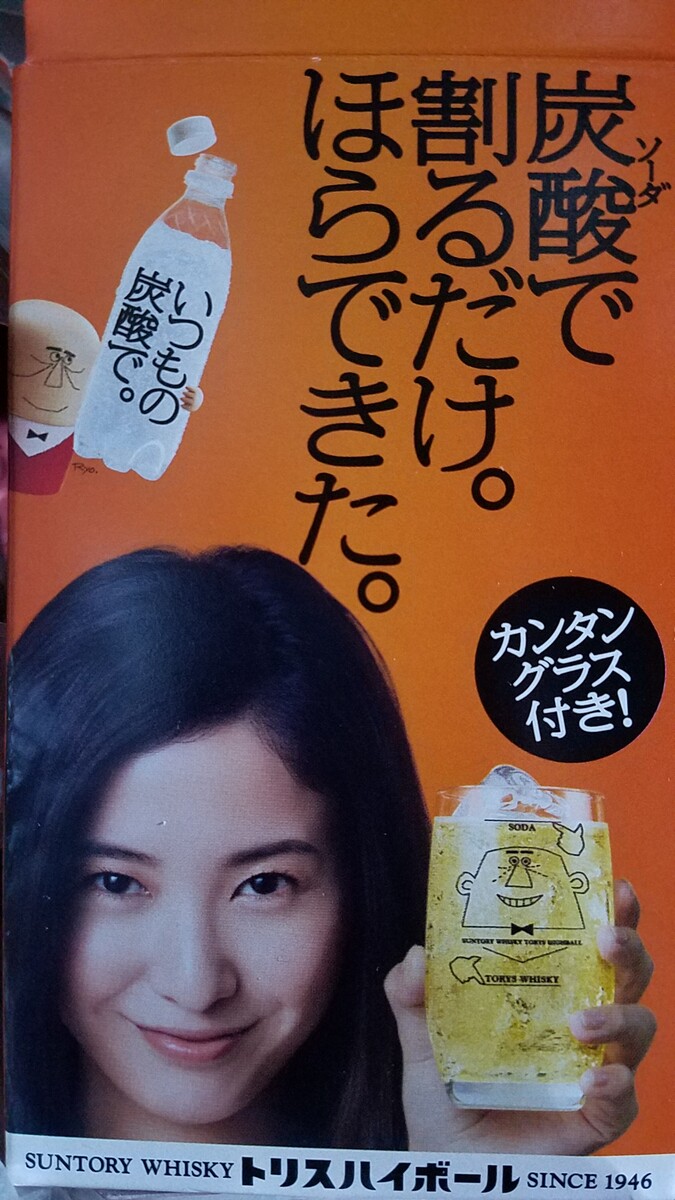 炭酸で
ソーダ
割るだけ。
ほらできた。
いつもの
炭酸で。
Ryo.
カンタン
グラス
付き!
SODA
SUNTORY WHISKY TORYS HIGHBALL
TORYS WHISKY
SUNTORY WHISKY トリスハイボール SINCE 1946